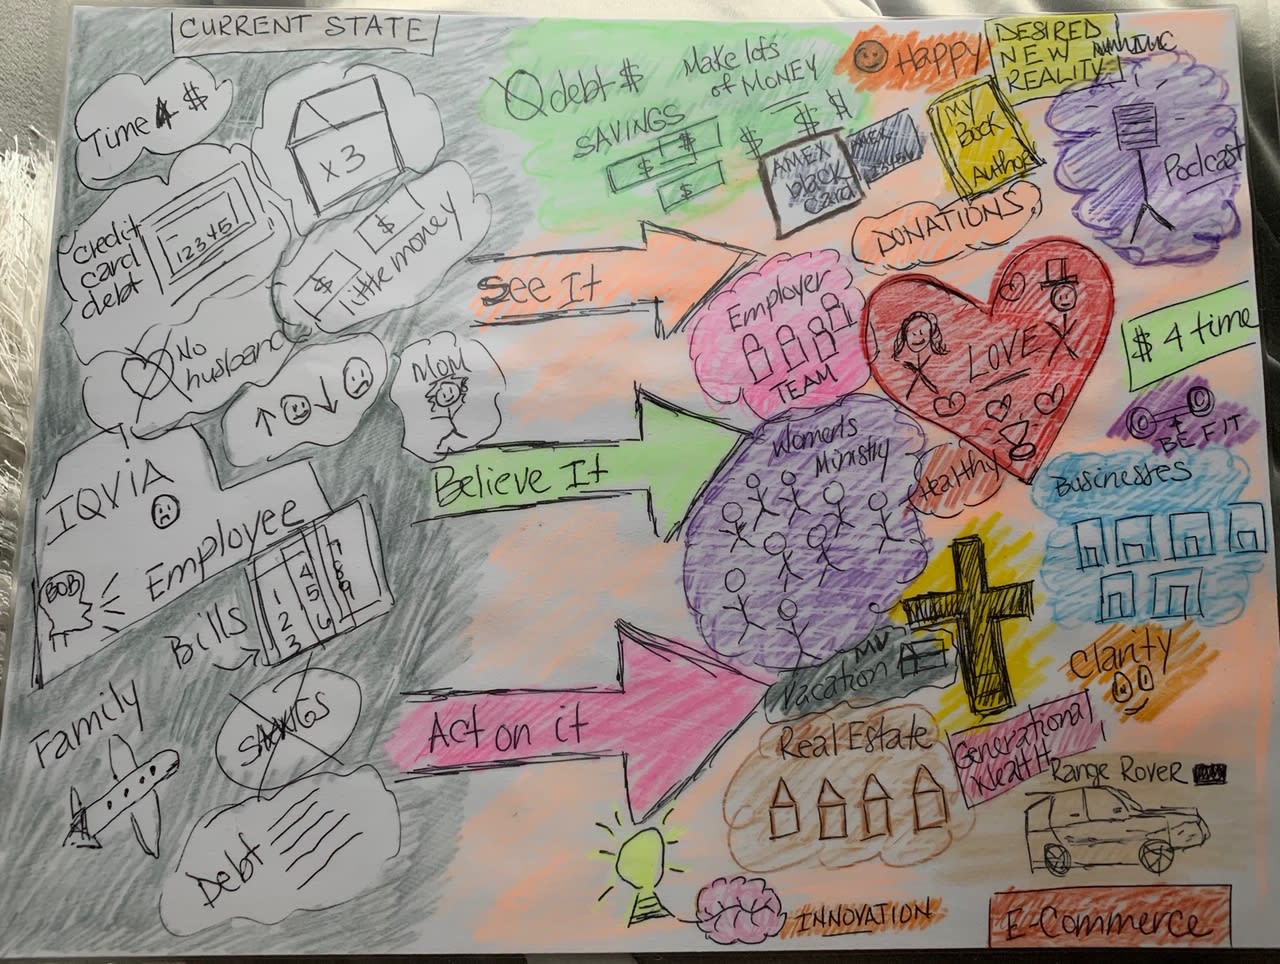 CURRENT STATE
Time 4 $
X3
credit
card
debt
12345
$
$
little money
No
husband
MOM
IQVIA
Employee
BOB
Bills
1 2 3
4 5 6
7 8 9
Family
SAVINGS
Debt
See It
Believe It
Act on it
debt $
SAVINGS
$
$
$
Make lots
of MONEY
$ $ $
Happy
DESIRED
NEW
REALITY
AMEX
black
card
AMEX
MY
Book
Author
Podcast
DONATIONS
Employer
TEAM
LOVE
$ 4 time
BE FIT
Healthy
Women's
Ministry
Businesses
Vacation
Clarity
Real Estate
Generational
Wealth
Range Rover
INNOVATION
E-Commerce